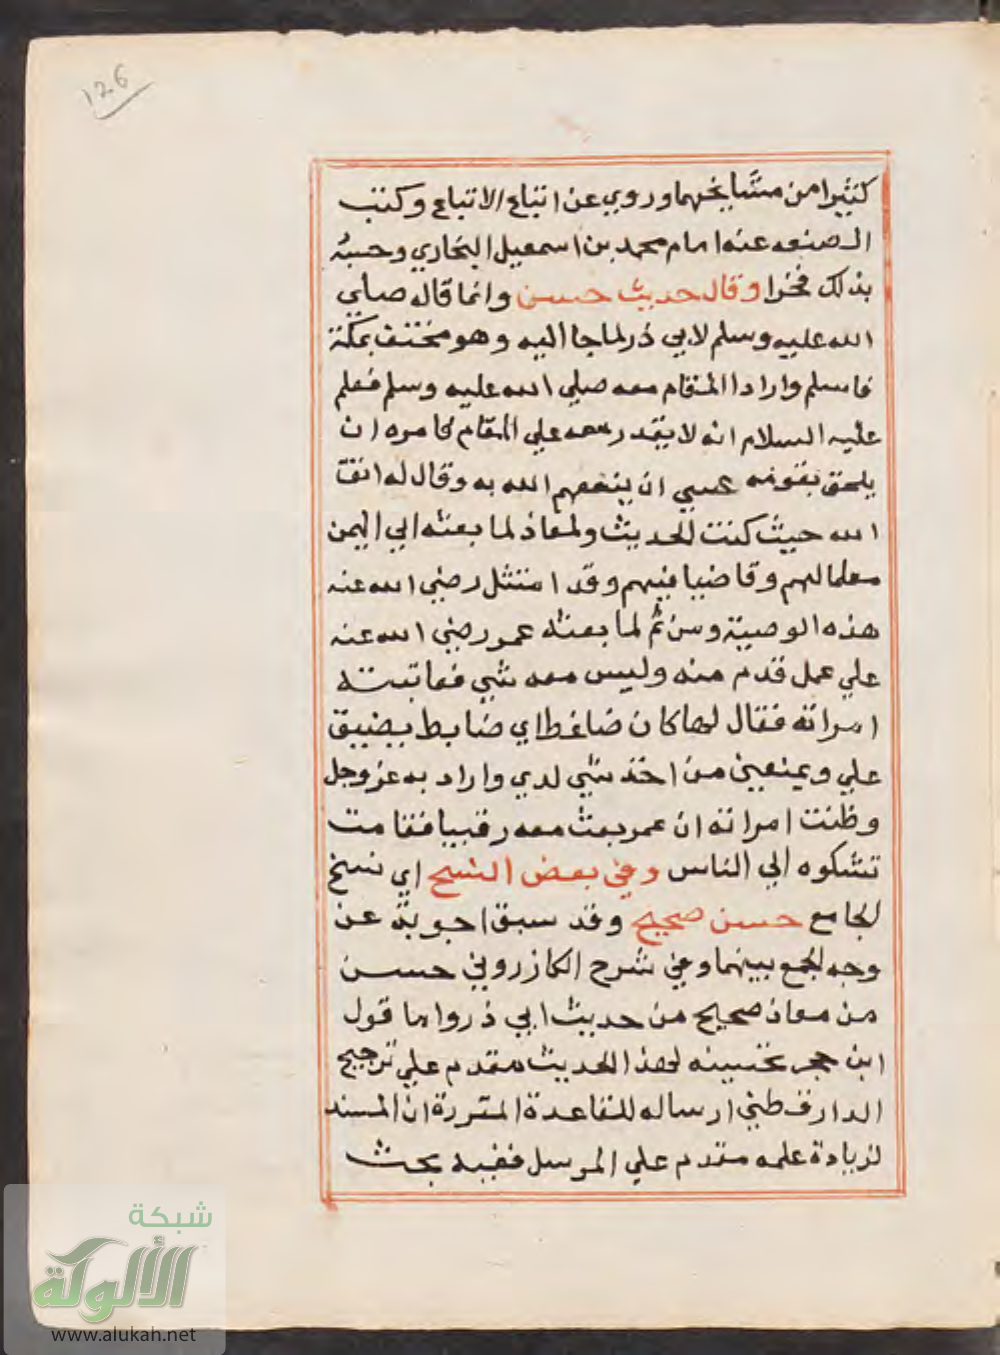 126
كثيرا من مشايخهما وروي عن اتباع الاتباع وكتب
الصنعه عنه امام محمد بن اسمعيل البخاري وحسبه
بذلك فخرا وقال حديث حسن وانما قاله صلي
الله عليه وسلم لابي ذر لما جا اليه وهو مختف بمكة
فاسلم واراد المقام معه صلي الله عليه وسلم فعلم
عليه السلام انه لا يقدر معه علي المقام فامره ان
يلحق بقومه عسي ان ينفعهم الله به وقال له اتق
الله حيث كنت الحديث ولمعاذ لما بعثه الي اليمن
معلما لهم وقاضيا فيهم وقد امتثل رضي الله عنه
هذه الوصية ومن ثم لما بعثه عمر رضي الله عنه
علي عمل قدم منه وليس معه شي فعاتبته
امراته فقال لها كان ضاغط اي ضابط يضيق
علي ويمنعني من اخذ شي لدي واراد به عز وجل
وظنت امراته ان عمر بعث معه رقيبا فقامت
تشكوه الي الناس وفي بعض النسخ اي نسخ
الجامع حسن صحيح وقد سبق اجوبة عن
وجه الجمع بينهما وفي شرح الكازروني حسن
من معاذ صحيح من حديث ابي ذر واما قول
ابن حجر تحسينه لهذا الحديث مقدم علي ترجيح
الدارقطني ارساله للقاعدة المقررة ان المسند
لزيادة علمه مقدم علي المرسل ففيه بحث
شبكة
الألوكة
www.alukah.net